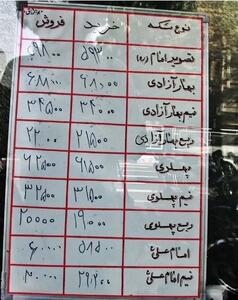 نوع سکه خرید فروش
تصویر امام (ره) ۵۹۳۰۰ ۵۹۸۰۰
بهار آزادی ۶۸۰۰۰ ۶۸۸۰۰
نیم بهار آزادی ۳۴۰۰۰ ۳۴۵۰۰
ربع بهار آزادی ۲۱۵۰۰ ۲۲۰۰۰
پهلوی ۶۱۵۰۰ ۶۲۵۰۰
نیم پهلوی ۳۱۵۰۰ ۳۲۵۰۰
ربع پهلوی ۱۹۰۰۰ ۲۰۰۰۰
امام علی ۵۸۵۰۰ ۶۰۰۰۰
نیم امام علی ۲۹۲۰۰ ۳۰۰۰۰